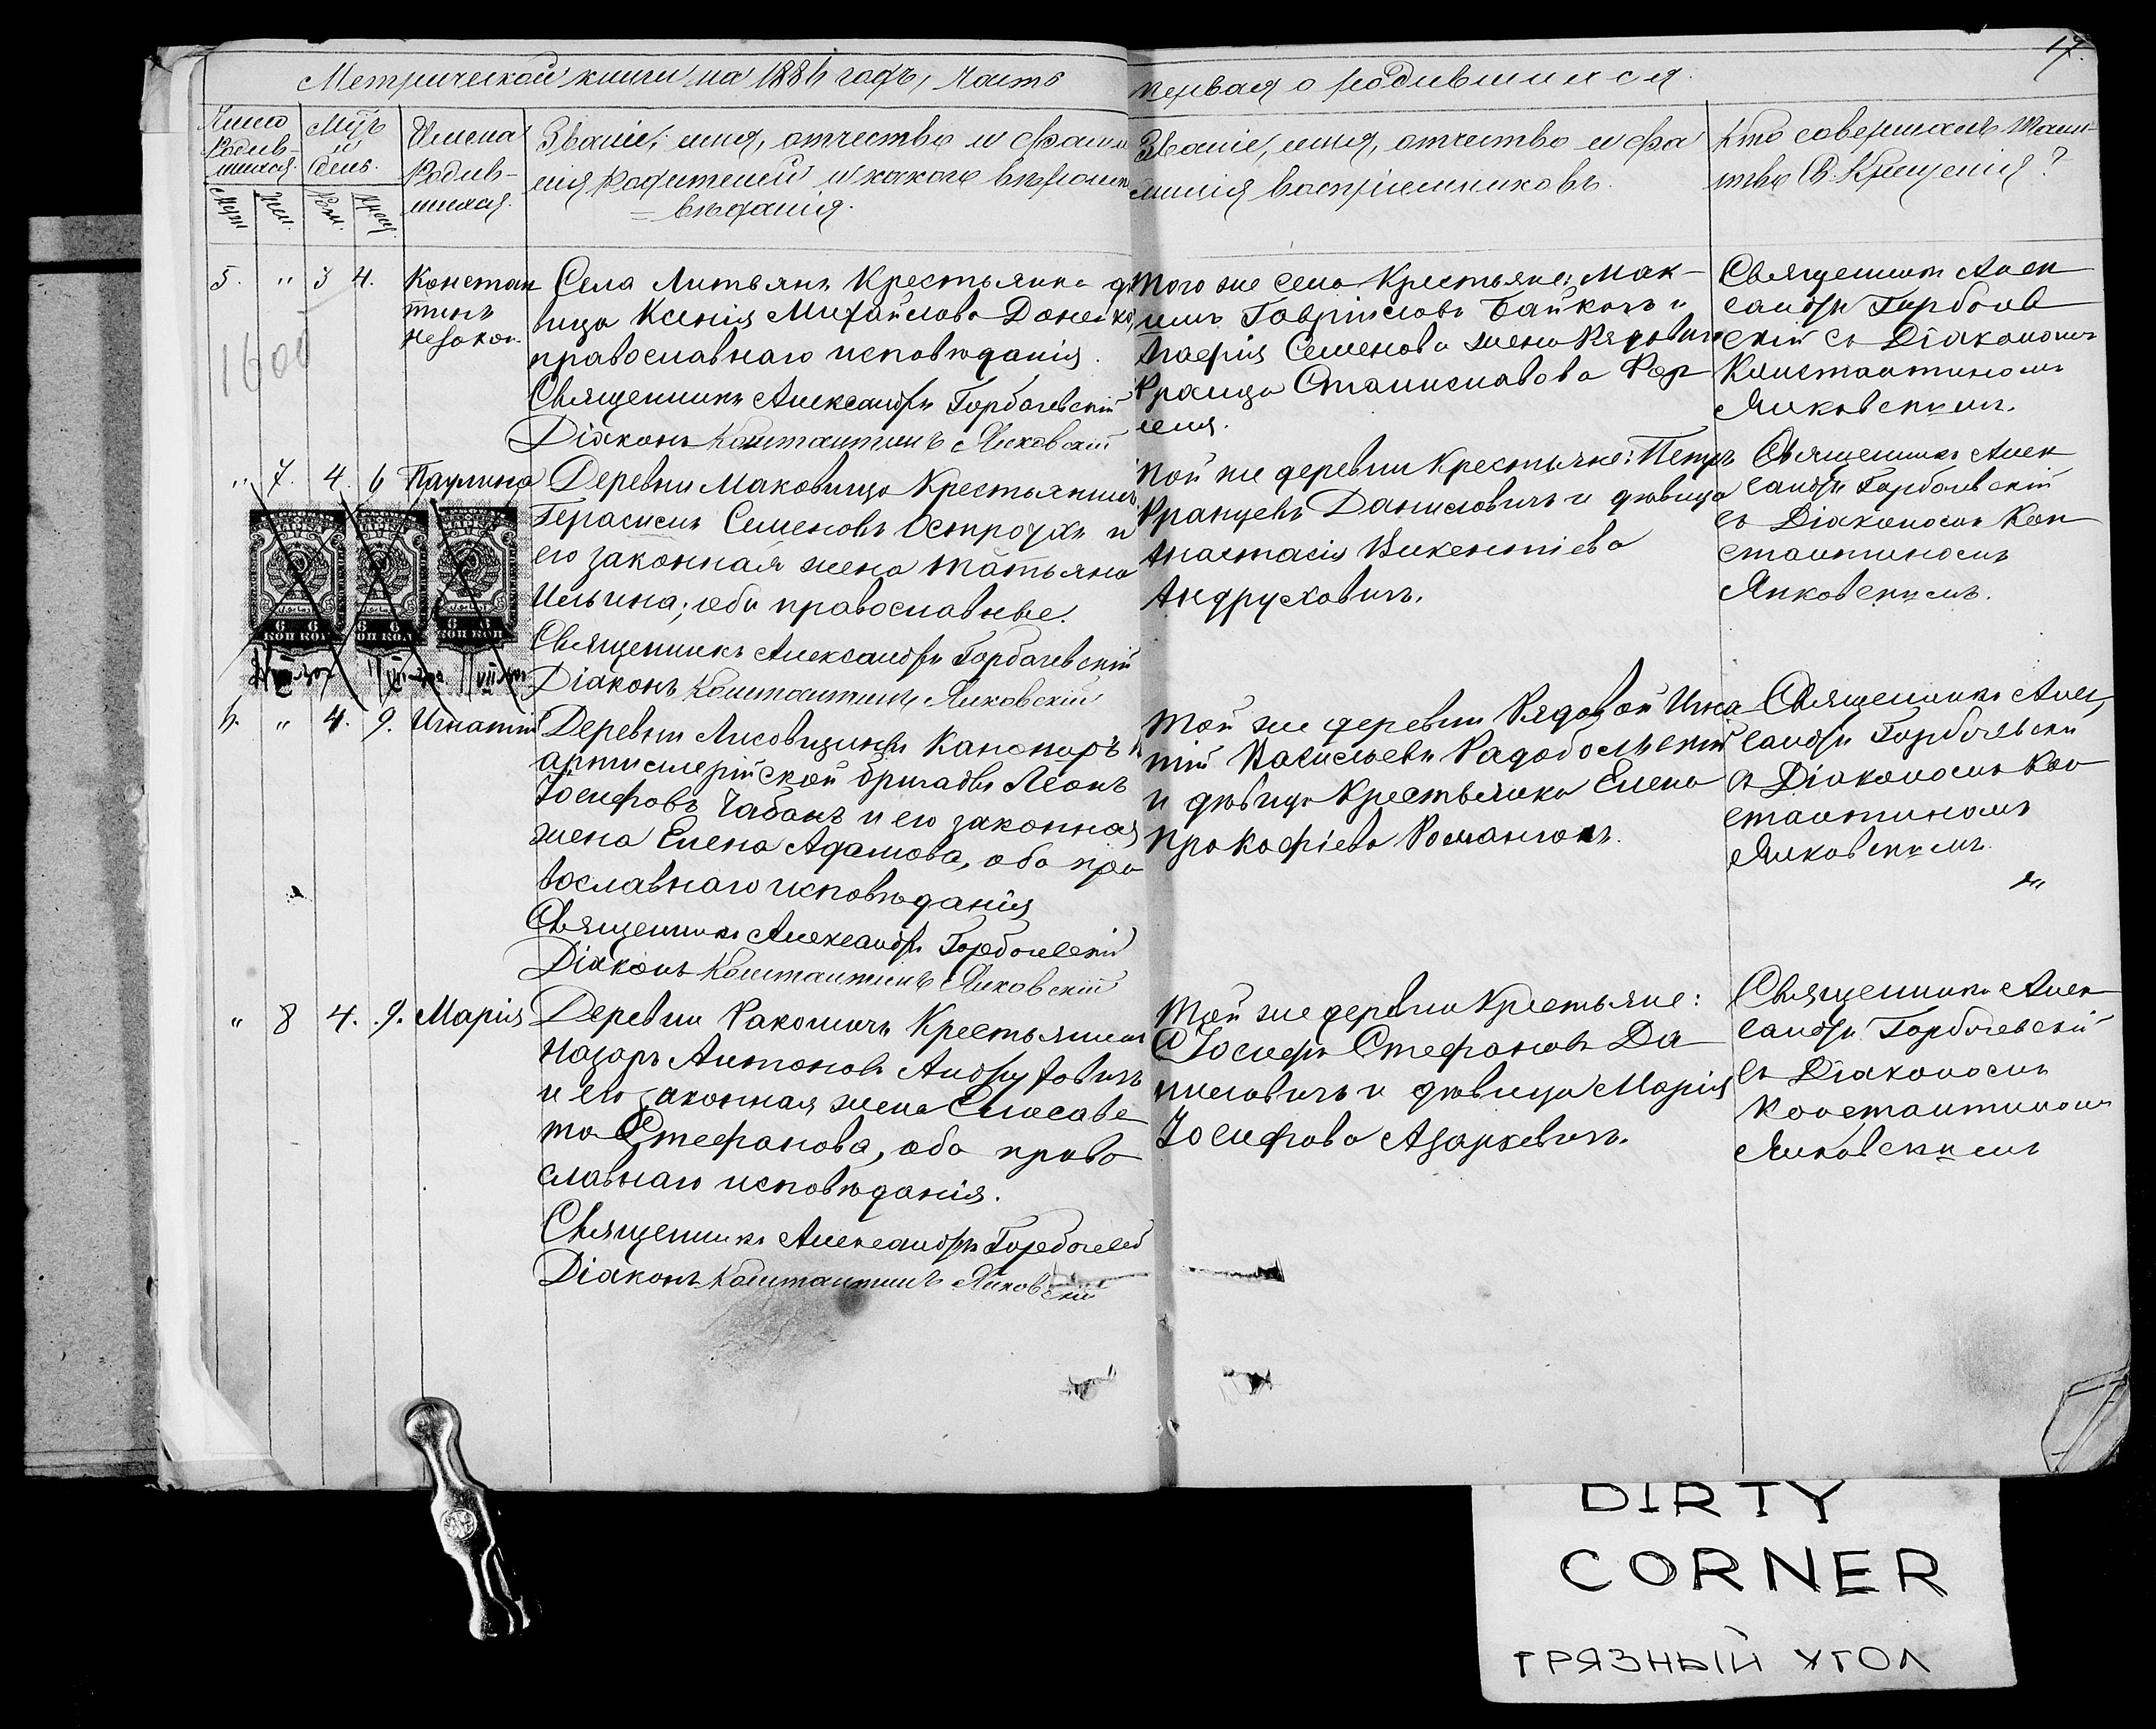 17.
Метрической книги на 1886 годъ, часть первая о родившихся.
Число родив-шихся. Муж. Жен.
Мѣц. и день. Рож. Крещ.
Имена Родив-шихся.
Званіе, имя, отчество и фами
лія родителей и какого вѣроисп
= вѣданія.
Званіе, имя, отчество и фа
милія воспріемниковъ.
Кто совершалъ таин-
ство Св. Крещенія?
5. " 3 4.
Констан
тинъ
незакон.
1600
Села Литвянъ Крестьянка дѣ
вица Ксенія Михайлова Данейко,
православнаго исповѣданія.
Священникъ Александръ Горбачевскій
Діаконъ Константинъ Янковскій
Того же села Крестьяне: Мак-
симъ Гавріиловъ Байкачъ и
Агафія Семенова жена Рядоваго
Франца Станиславова Фер-
Священникъ Алек
сандръ Горбачев
скій съ Діакономъ
Константиномъ
Янковскимъ.
" 7. 4. 6 Паулина
Деревни Маковища Крестьянинъ
Герасимъ Семеновъ Остроухъ и
его законная жена Татьяна
Ильина; оба православные.
Священникъ Александръ Горбачевскій
Діаконъ Константинъ Янковскій
Той же деревни Крестьяне: Петръ
Францевъ Даниловичъ и дѣвица
Анастасія Викентіева
Андруховичъ.
Священникъ Алек
сандръ Горбачевскій
съ Діакономъ Кон
стантиномъ
Янковскимъ.
6 6
КОП КОП
6 6
КОП КОП
6 6
КОП КОП
6. " 4. 9. Игнатій
Деревни Лисовщины Канониръ
артиллерійской бригады Леонъ
Іосифовъ Чабанъ и его законная
жена Елена Адамова, оба пра
вославнаго исповѣданія
Священникъ Александръ Горбачевскій
Діаконъ Константинъ Янковскій
Той же деревни Рядовой Игна
тій Васильевъ Радобольскій
и дѣвица Крестьянка Елена
Прокофіева Романчокъ.
Священникъ Алек
сандръ Горбачевскій
съ Діакономъ Кон
стантиномъ
Янковскимъ.
" 8 4. 9. Марія
Деревни Ракошичъ Крестьянинъ
Назаръ Антоновъ Андруховичъ
и его законная жена Елисаве
та Стефанова, оба право
славнаго исповѣданія.
Священникъ Александръ Горбачевскій
Діаконъ Константинъ Янковскій
Той же деревни Крестьяне:
Іосифъ Стефановъ Да
ниловичъ и дѣвица Марія
Іосифова Азаркевичъ.
Священникъ Алек
сандръ Горбачевскій
съ Діакономъ
Константиномъ
Янковскимъ
DIRTY
CORNER
ГРЯЗНЫЙ УГОЛ